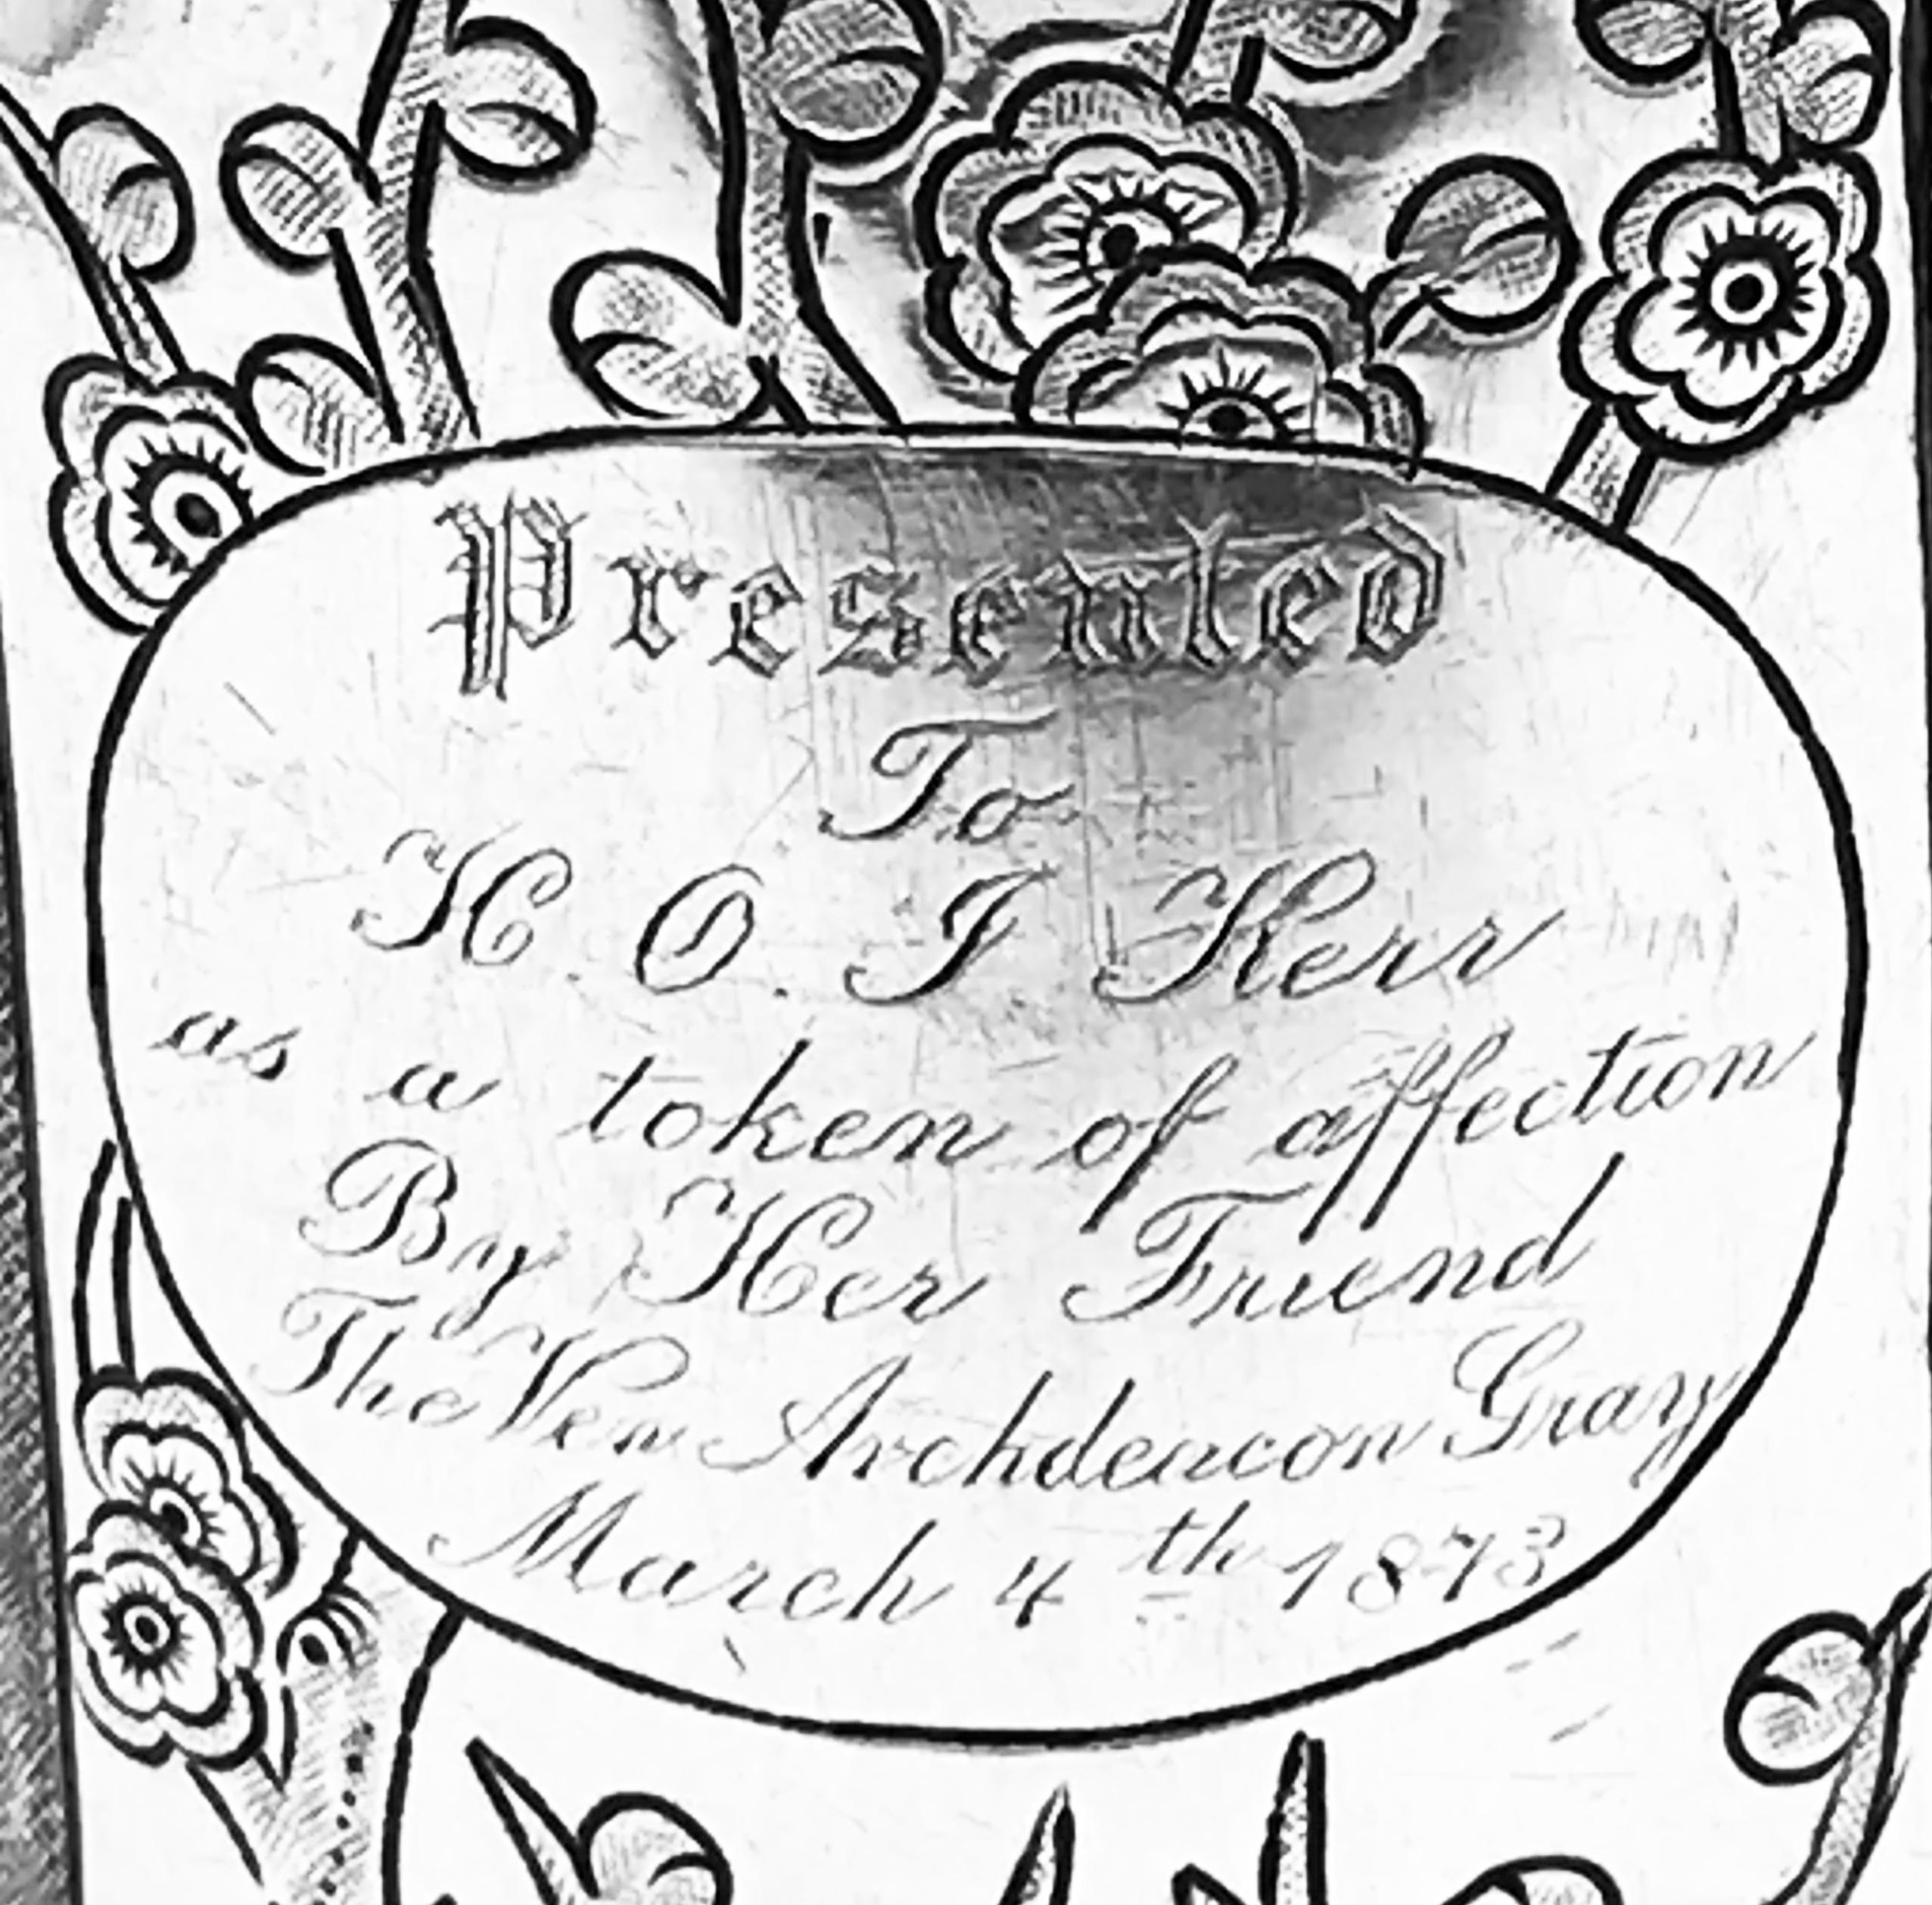 Presented
To
H. O. J Kerr
as a token of affection
By Her Friend
The Ven Archdeacon Gray
March 4th 1873